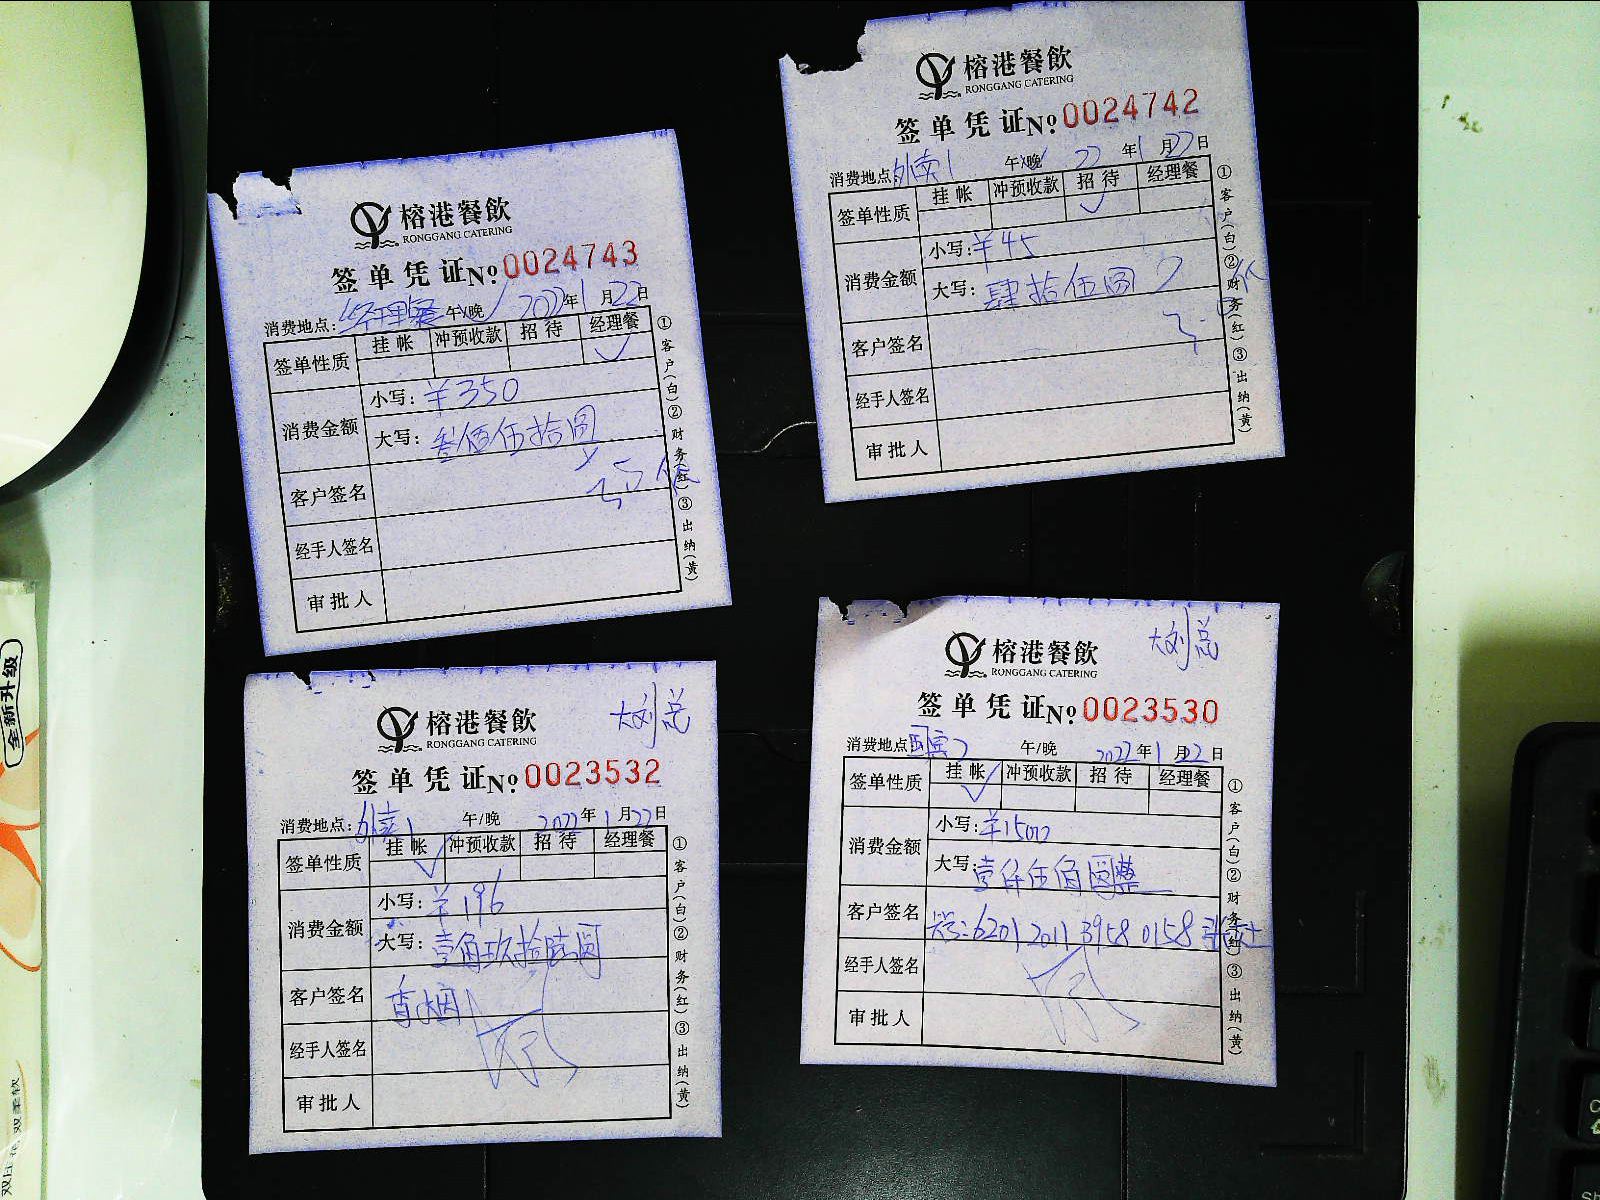 榕港餐飲
RONGGANG CATERING
签单凭证 No 0024743
消费地点: 经理餐 午/晚 2022年1月22日
签单性质 挂帐 冲预收款 招待 经理餐
消费金额
小写: ¥350
大写: 叁佰伍拾圆
客户签名
经手人签名
审批人
①客户(白)②财务(红)③出纳(黄)
榕港餐飲
RONGGANG CATERING
签单凭证 No 0024742
消费地点 外卖1 午/晚 22年1月22日
签单性质 挂帐 冲预收款 招待 经理餐
消费金额
小写: ¥45
大写: 肆拾伍圆
客户签名
经手人签名
审批人
①客户(白)②财务(红)③出纳(黄)
大刘总
榕港餐飲
RONGGANG CATERING
签单凭证 No 0023532
消费地点: 外卖1 午/晚 2022年1月22日
签单性质 挂帐 冲预收款 招待 经理餐
消费金额
小写: ¥196
大写: 壹佰玖拾陆圆
客户签名 香烟
经手人签名
审批人
①客户(白)②财务(红)③出纳(黄)
大刘总
榕港餐飲
RONGGANG CATERING
签单凭证 No 0023530
消费地点 午/晚 2022年1月22日
签单性质 挂帐 冲预收款 招待 经理餐
消费金额
小写: ¥1500
大写: 壹仟伍佰圆整
客户签名 6201 2011 3958 0158
经手人签名
审批人
①客户(白)②财务(红)③出纳(黄)
全新升级